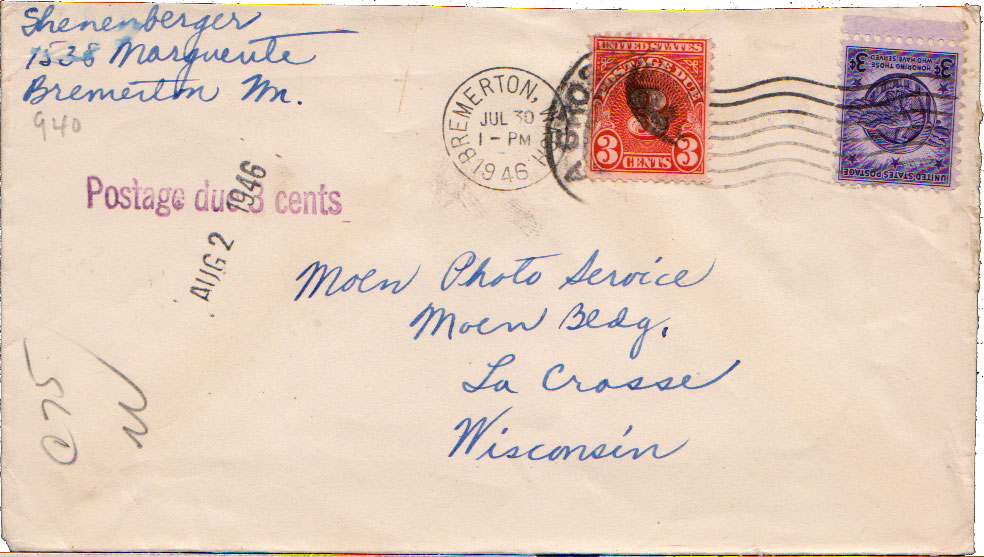 Shenenberger
1538 Marguerite
Bremerton Wn.
940
Postage due 3 cents
AUG 2 1946
BREMERTON,
JUL 30
1 - PM
1946
UNITED STATES
POSTAGE DUE
3 CENTS 3
3¢ HONORING THOSE WHO HAVE SERVED 3¢
UNITED STATES POSTAGE
Moen Photo Service
Moen Bldg.
La Crosse
Wisconsin
C75
N